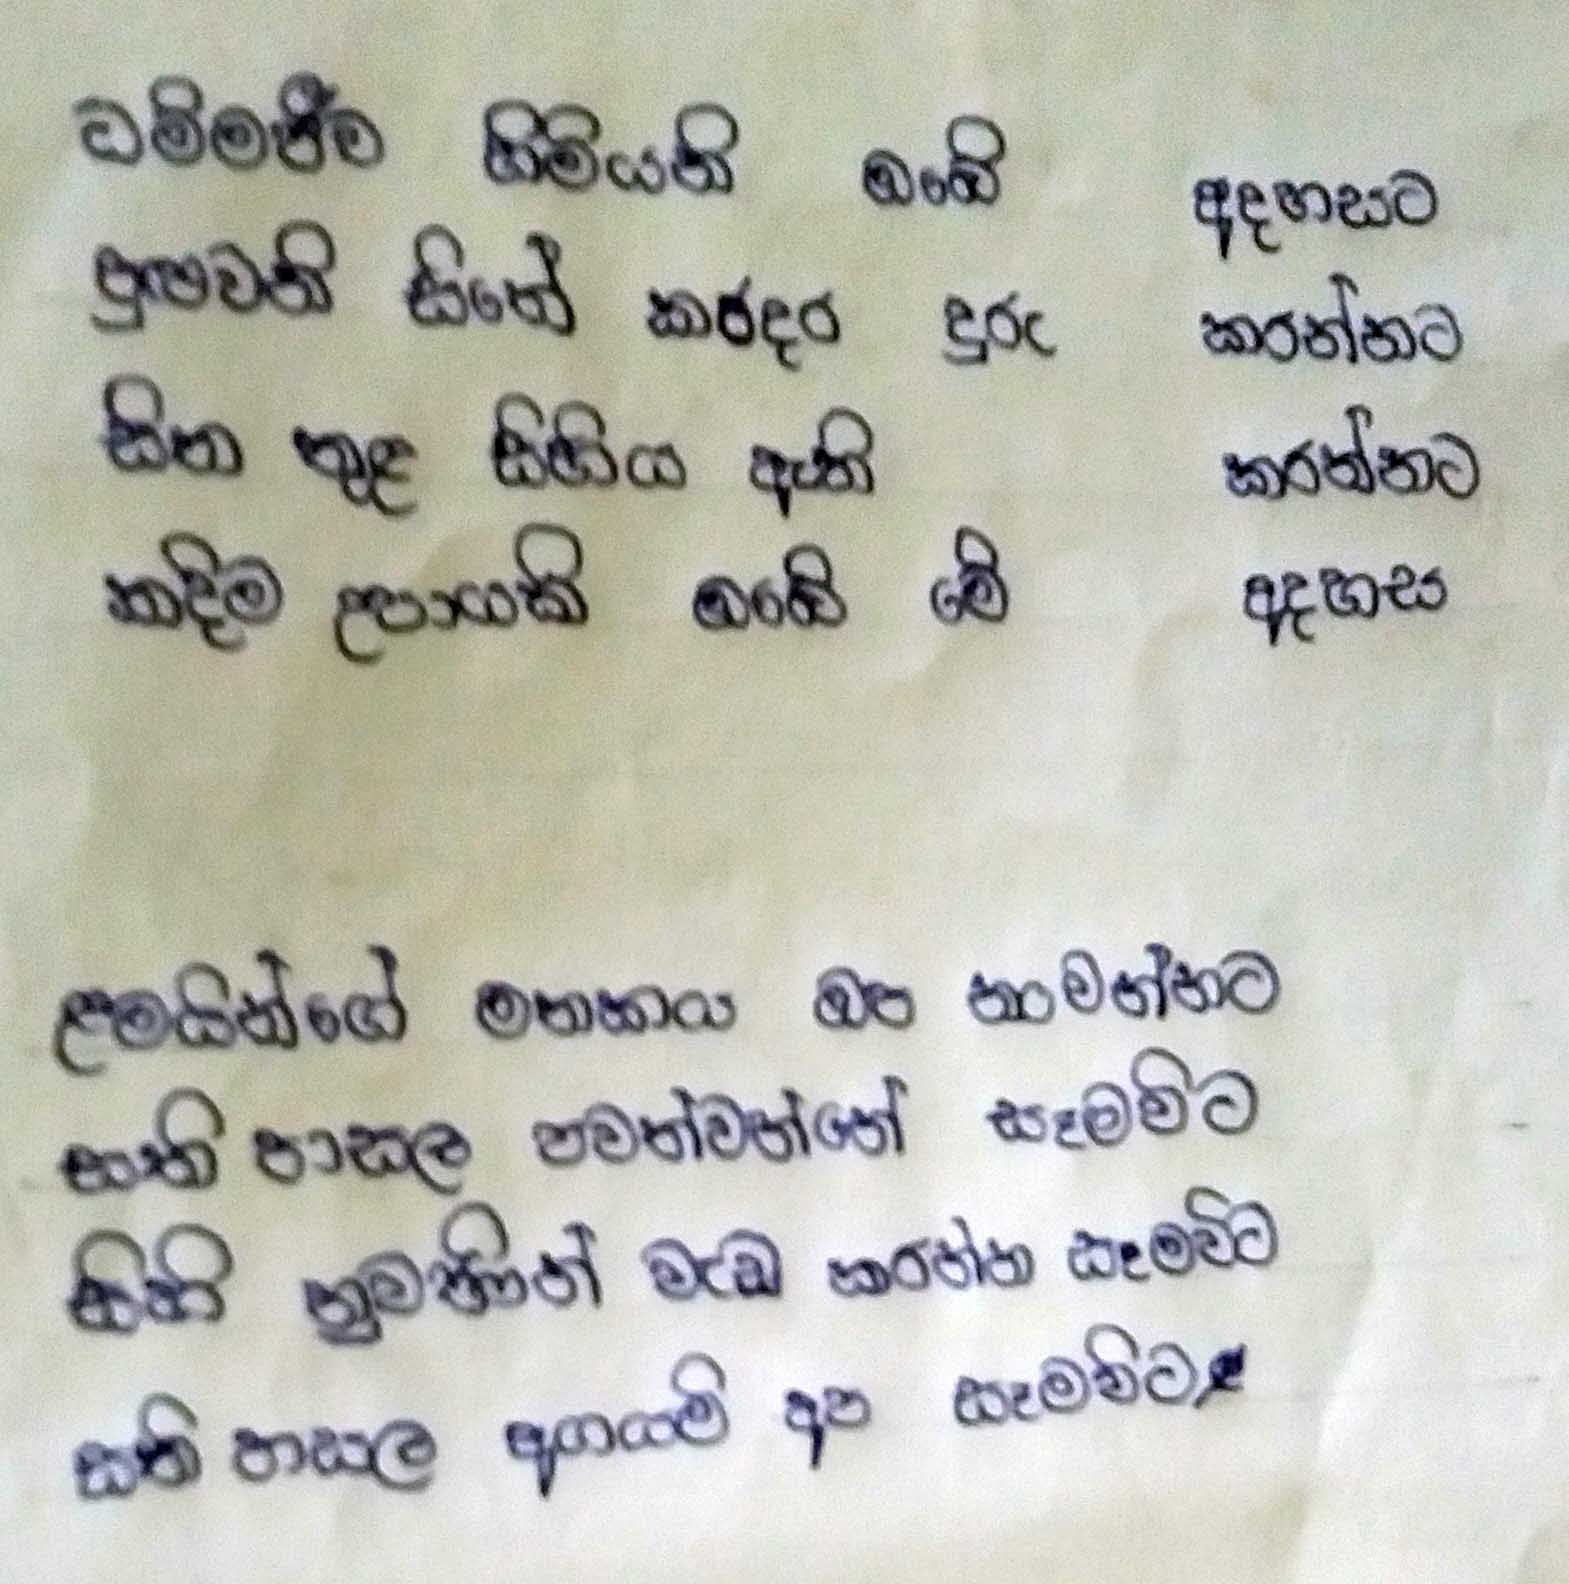 ධම්මජීව හිමියනි ඔබේ අදහසට
පුතුවනි සිතේ කරදර දුරු කරන්නට
සිත තුළ සිහිය ඇති කරන්නට
කදිම උපායකි ඔබේ මේ අදහස
ළමයින්ගේ මනකාය ඔප නංවන්නට
සති පාසල පවත්වන්නේ සෑමවිට
සිහි නුවණින් වැඩ කරන්න සෑමවිට
සති පාසල අගයමි අප සෑමවිට